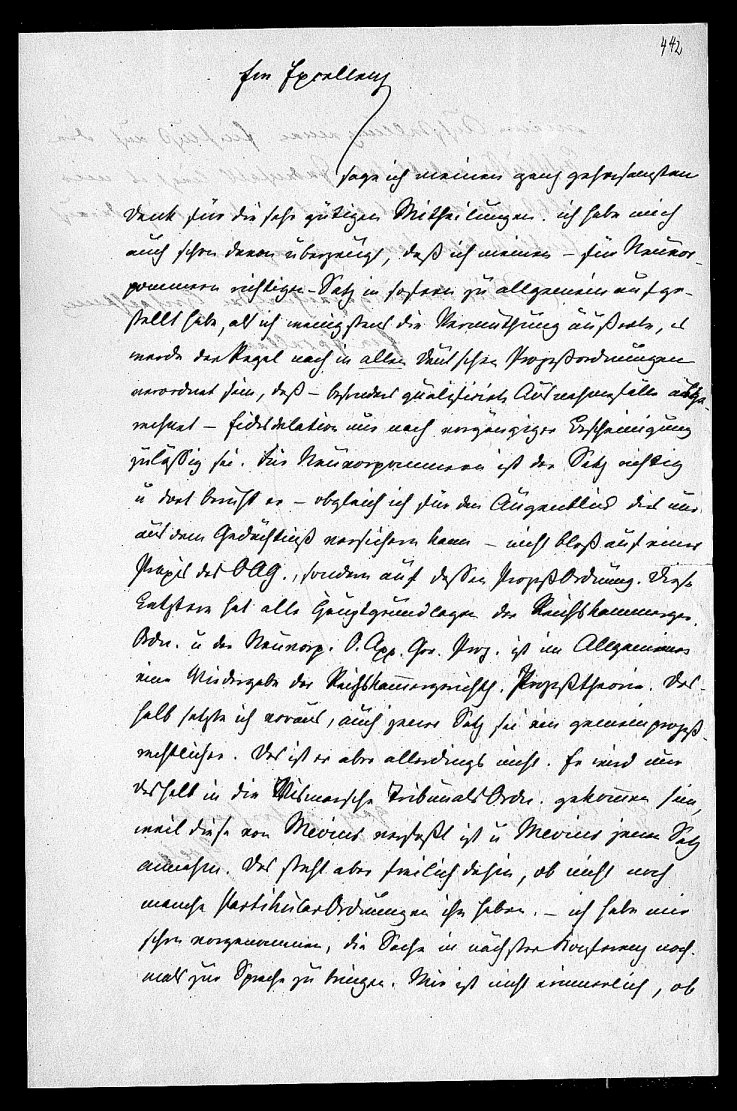 442
Ew Excellenz
sage ich meinen ganz gehorsamsten
Dank für die sehr gütigen Mittheilungen. ich habe mich
auch schon davon überzeugt, daß ich meinen – für Neuvor-
pommern richtigen – Satz in sofern zu allgemein aufge-
stellt habe, als ich wenigstens die Vermuthung äußerte, es
werde der Regel nach in allen deutschen Prozeßordnungen
verordnet sein, daß – besonders qualifizirte Ausnahmefälle abge-
rechnet – Eidesdelation nur nach vorgängiger Bescheinigung
zulässig sei. Für Neuvorpommern ist der Satz richtig
u dort beruht er – obgleich ich für den Augenblick dies nur
aus dem Gedächtniß versichern kann – nicht bloß auf einer
Praxis des OAG., sondern auf dessen Prozeßordnung. Diese
Letztere hat alle Hauptgrundlagen der Reichskammerger.
Ordn. u der Neuvorp. O. App. Ger. Proz. ist im Allgemeinen
eine Wiedergabe der Reichskammergerichtl. Prozeßtheorie. Des-
halb setzte ich voraus, auch jener Satz sei ein gemeinprozeß-
rechtlicher. Das ist er aber allerdings nicht. Er wird nur
deshalb in die Wismarsche Tribunals Ordn. gekommen sein,
weil diese von Mevius verfaßt ist u Mevius jenen Satz
annahm. Das steht aber freilich dahin, ob nicht noch
manche Partikular Ordnungen ihn haben. – ich habe mir
schon vorgenommen, die Sache in nächster Konferenz noch-
mals zur Sprache zu bringen. Mir ist nicht erinnerlich, ob